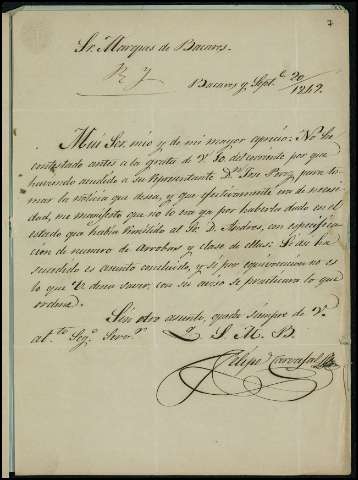 7
Sr. Marques de Bacares.
R. J.
Bacares y Septe. 20/1849.
Mui Sor. mio y de mi mayor aprecio: No he
contestado antes á la grata de V. 10, del corriente por que
haviendo acudido a su representante Dn. José Perez para to-
mar la noticia que desea, y que efectivamente era de necesi-
dad, me manifesto que no lo era ya por haberla dado en el
estado que habia remitido al Sr. D. Andres, con especifica-
cion de numero de Arrobas y clase de ellas: Si asi ha
sucedido es asunto concluido, y si por equivocacion no es
lo que V. desea saver, con su aviso se practicará lo que
ordene.
Sin otro asunto, queda siempre de V.
at. to. Seg. o Servor. Q. S. M. B.
Felipe Carvajal